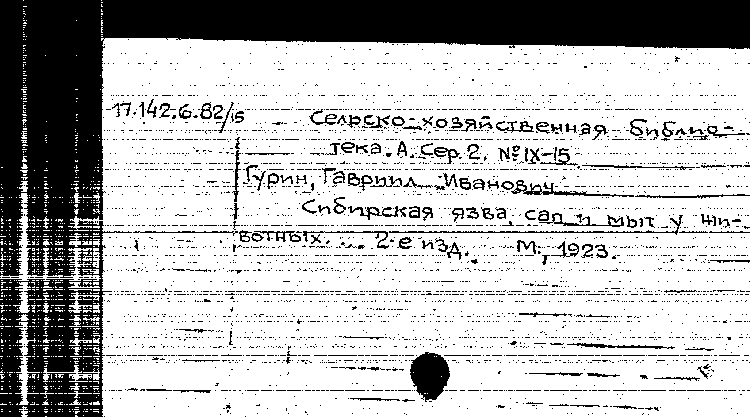 17.142.6.82/15
Сельско-хозяйственная библио-
тека. А. Сер. 2. № IX-15
Гурин, Гавриил Иванович
Сибирская язва, сап и мыт у жи-
вотных. ... 2-е изд. М., 1923.